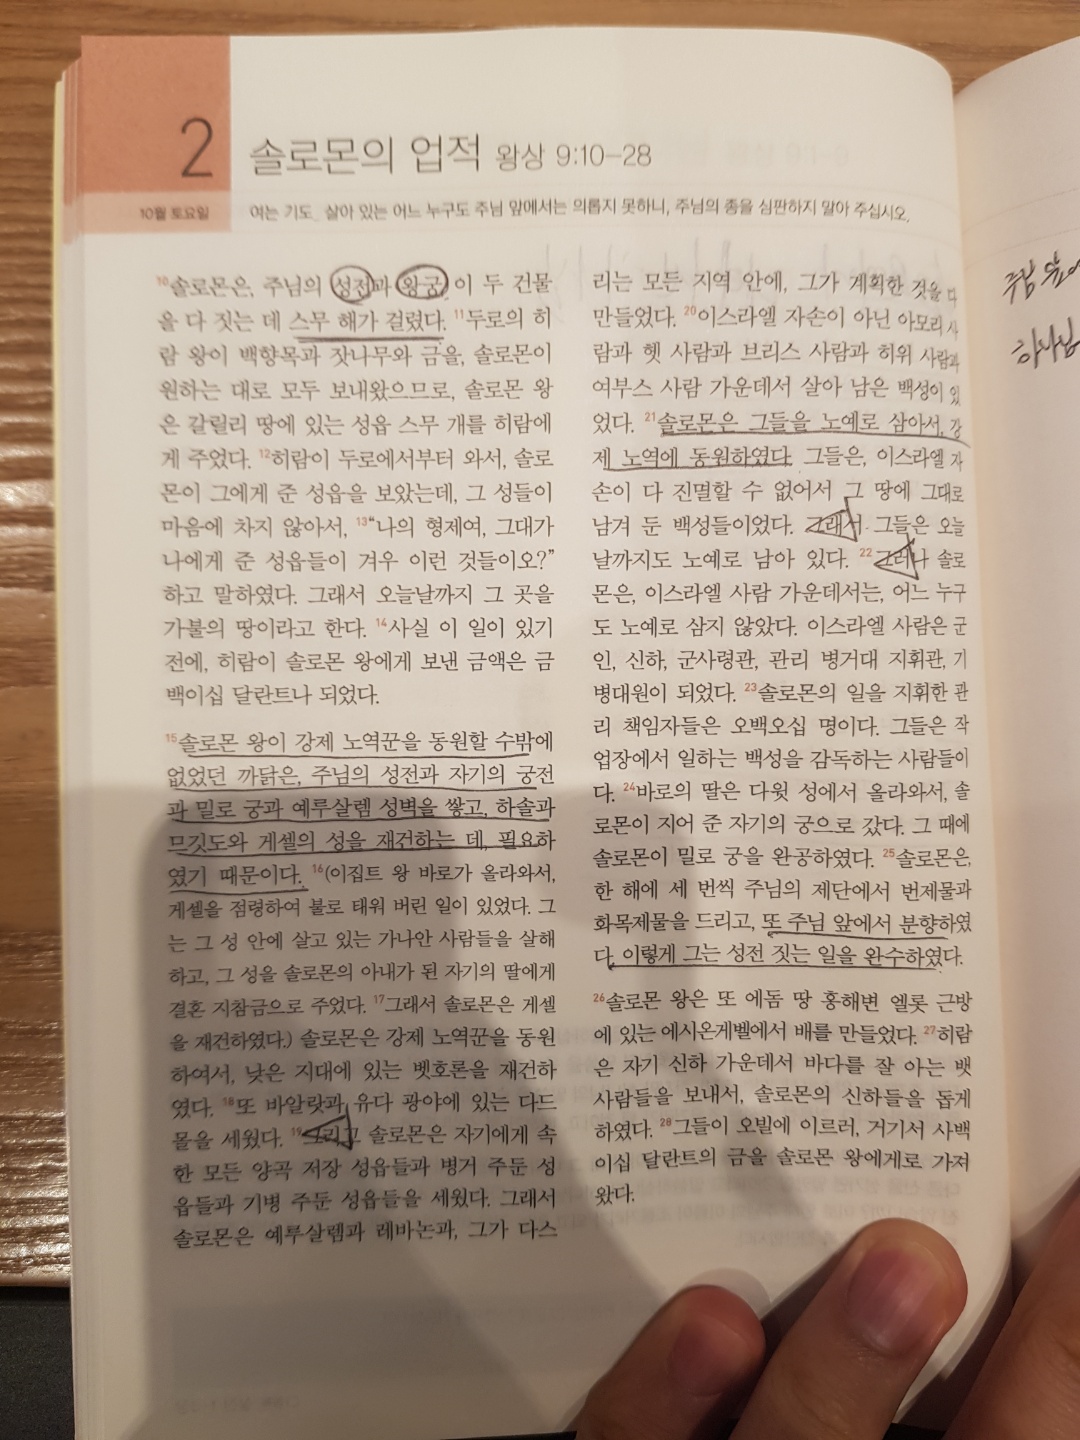 2
솔로몬의 업적 왕상 9:10-28
10월 토요일
여는 기도 살아 있는 어느 누구도 주님 앞에서는 의롭지 못하니, 주님의 종을 심판하지 말아 주십시오.
10솔로몬은, 주님의 성전과 왕궁 이 두 건물
을 다 짓는 데 스무 해가 걸렸다. 11두로의 히
람 왕이 백향목과 잣나무와 금을, 솔로몬이
원하는 대로 모두 보내왔으므로, 솔로몬 왕
은 갈릴리 땅에 있는 성읍 스무 개를 히람에
게 주었다. 12히람이 두로에서부터 와서, 솔로
몬이 그에게 준 성읍을 보았는데, 그 성들이
마음에 차지 않아서, 13“나의 형제여, 그대가
나에게 준 성읍들이 겨우 이런 것들이오?”
하고 말하였다. 그래서 오늘날까지 그 곳을
가불의 땅이라고 한다. 14사실 이 일이 있기
전에, 히람이 솔로몬 왕에게 보낸 금액은 금
백이십 달란트나 되었다.
15솔로몬 왕이 강제 노역꾼을 동원할 수밖에
없었던 까닭은, 주님의 성전과 자기의 궁전
과 밀로 궁과 예루살렘 성벽을 쌓고, 하솔과
므깃도와 게셀의 성을 재건하는 데, 필요하
였기 때문이다. 16(이집트 왕 바로가 올라와서,
게셀을 점령하여 불로 태워 버린 일이 있었다. 그
는 그 성 안에 살고 있는 가나안 사람들을 살해
하고, 그 성을 솔로몬의 아내가 된 자기의 딸에게
결혼 지참금으로 주었다. 17그래서 솔로몬은 게셀
을 재건하였다.) 솔로몬은 강제 노역꾼을 동원
하여서, 낮은 지대에 있는 벳호론을 재건하
였다. 18또 바알랏과 유다 광야에 있는 다드
몰을 세웠다. 19그리고 솔로몬은 자기에게 속
한 모든 양곡 저장 성읍들과 병거 주둔 성
읍들과 기병 주둔 성읍들을 세웠다. 그래서
솔로몬은 예루살렘과 레바논과, 그가 다스
리는 모든 지역 안에, 그가 계획한 것을 다
만들었다. 20이스라엘 자손이 아닌 아모리 사
람과 헷 사람과 브리스 사람과 히위 사람과
여부스 사람 가운데서 살아 남은 백성이 있
었다. 21솔로몬은 그들을 노예로 삼아서, 강
제 노역에 동원하였다. 그들은, 이스라엘 자
손이 다 진멸할 수 없어서 그 땅에 그대로
남겨 둔 백성들이었다. 그래서 그들은 오늘
날까지도 노예로 남아 있다. 22그러나 솔로
몬은, 이스라엘 사람 가운데서는, 어느 누구
도 노예로 삼지 않았다. 이스라엘 사람은 군
인, 신하, 군사령관, 관리 병거대 지휘관, 기
병대원이 되었다. 23솔로몬의 일을 지휘한 관
리 책임자들은 오백오십 명이다. 그들은 작
업장에서 일하는 백성을 감독하는 사람들이
다. 24바로의 딸은 다윗 성에서 올라와서, 솔
로몬이 지어 준 자기의 궁으로 갔다. 그 때에
솔로몬이 밀로 궁을 완공하였다. 25솔로몬은,
한 해에 세 번씩 주님의 제단에서 번제물과
화목제물을 드리고, 또 주님 앞에서 분향하였
다. 이렇게 그는 성전 짓는 일을 완수하였다.
26솔로몬 왕은 또 에돔 땅 홍해변 엘롯 근방
에 있는 에시온게벨에서 배를 만들었다. 27히람
은 자기 신하 가운데서 바다를 잘 아는 뱃
사람들을 보내서, 솔로몬의 신하들을 돕게
하였다. 28그들이 오빌에 이르러, 거기서 사백
이십 달란트의 금을 솔로몬 왕에게로 가져
왔다.
주님 앞에
하나님